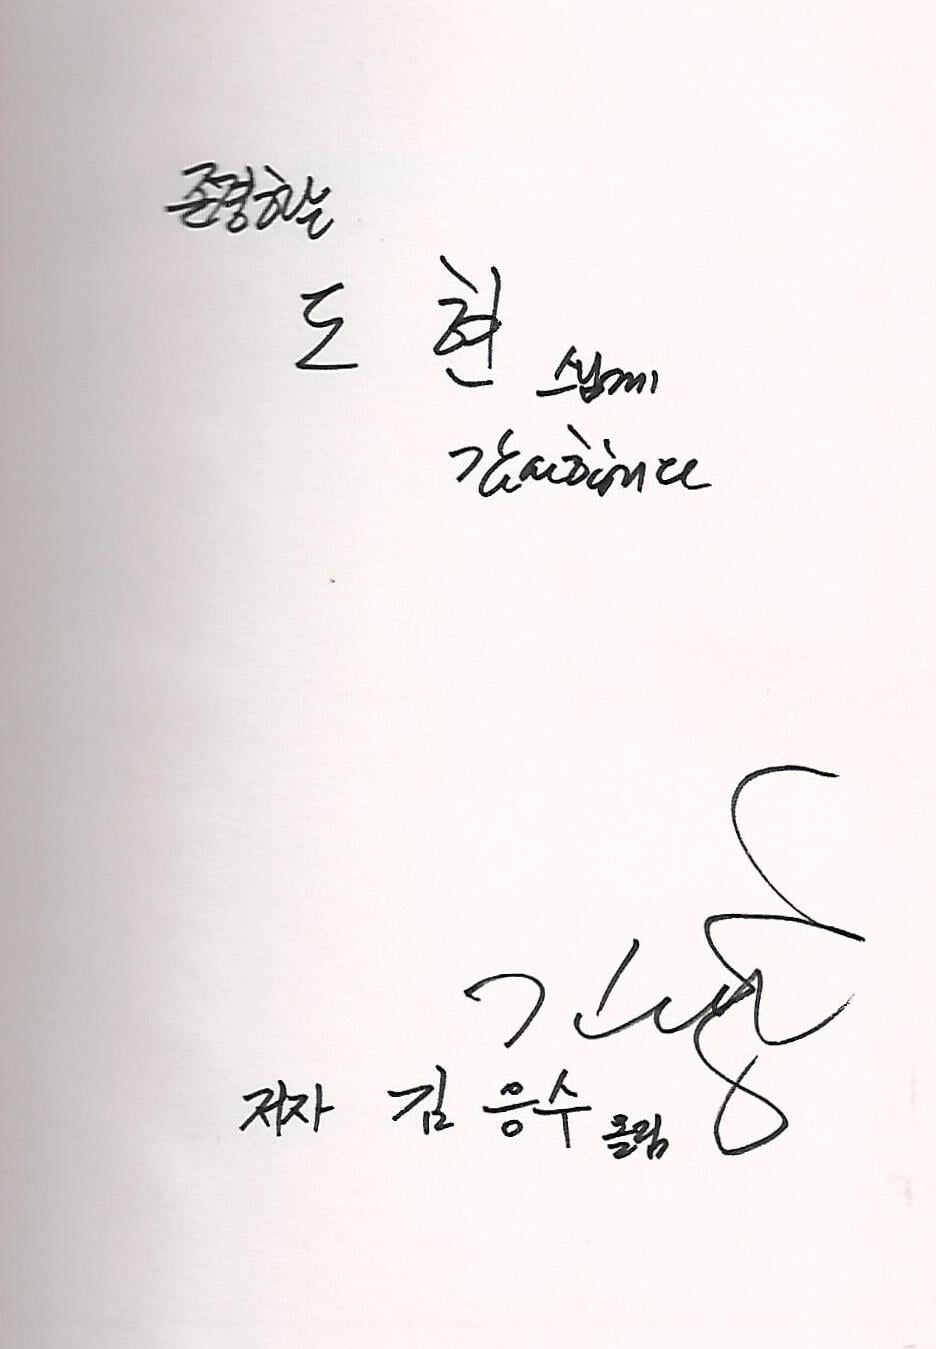 존경하는
도 현 스님께
감사합니다
저자 김 응수 드림